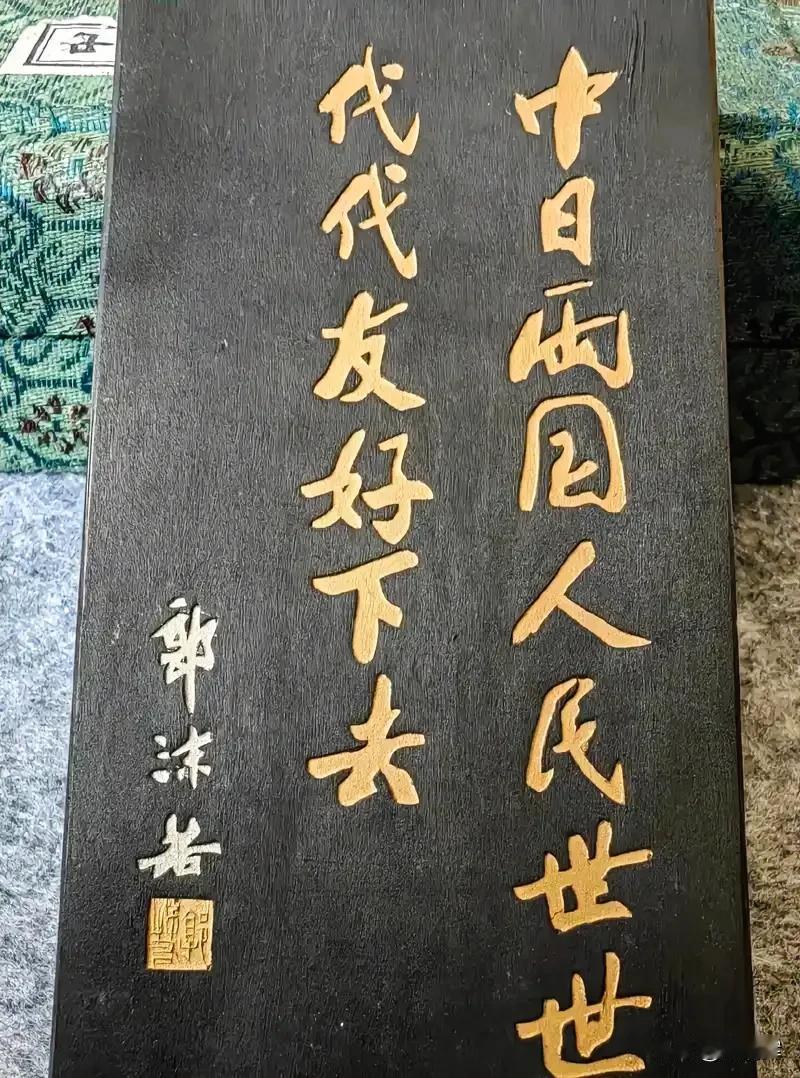 中日两国人民世世
代代友好下去
郭沫若